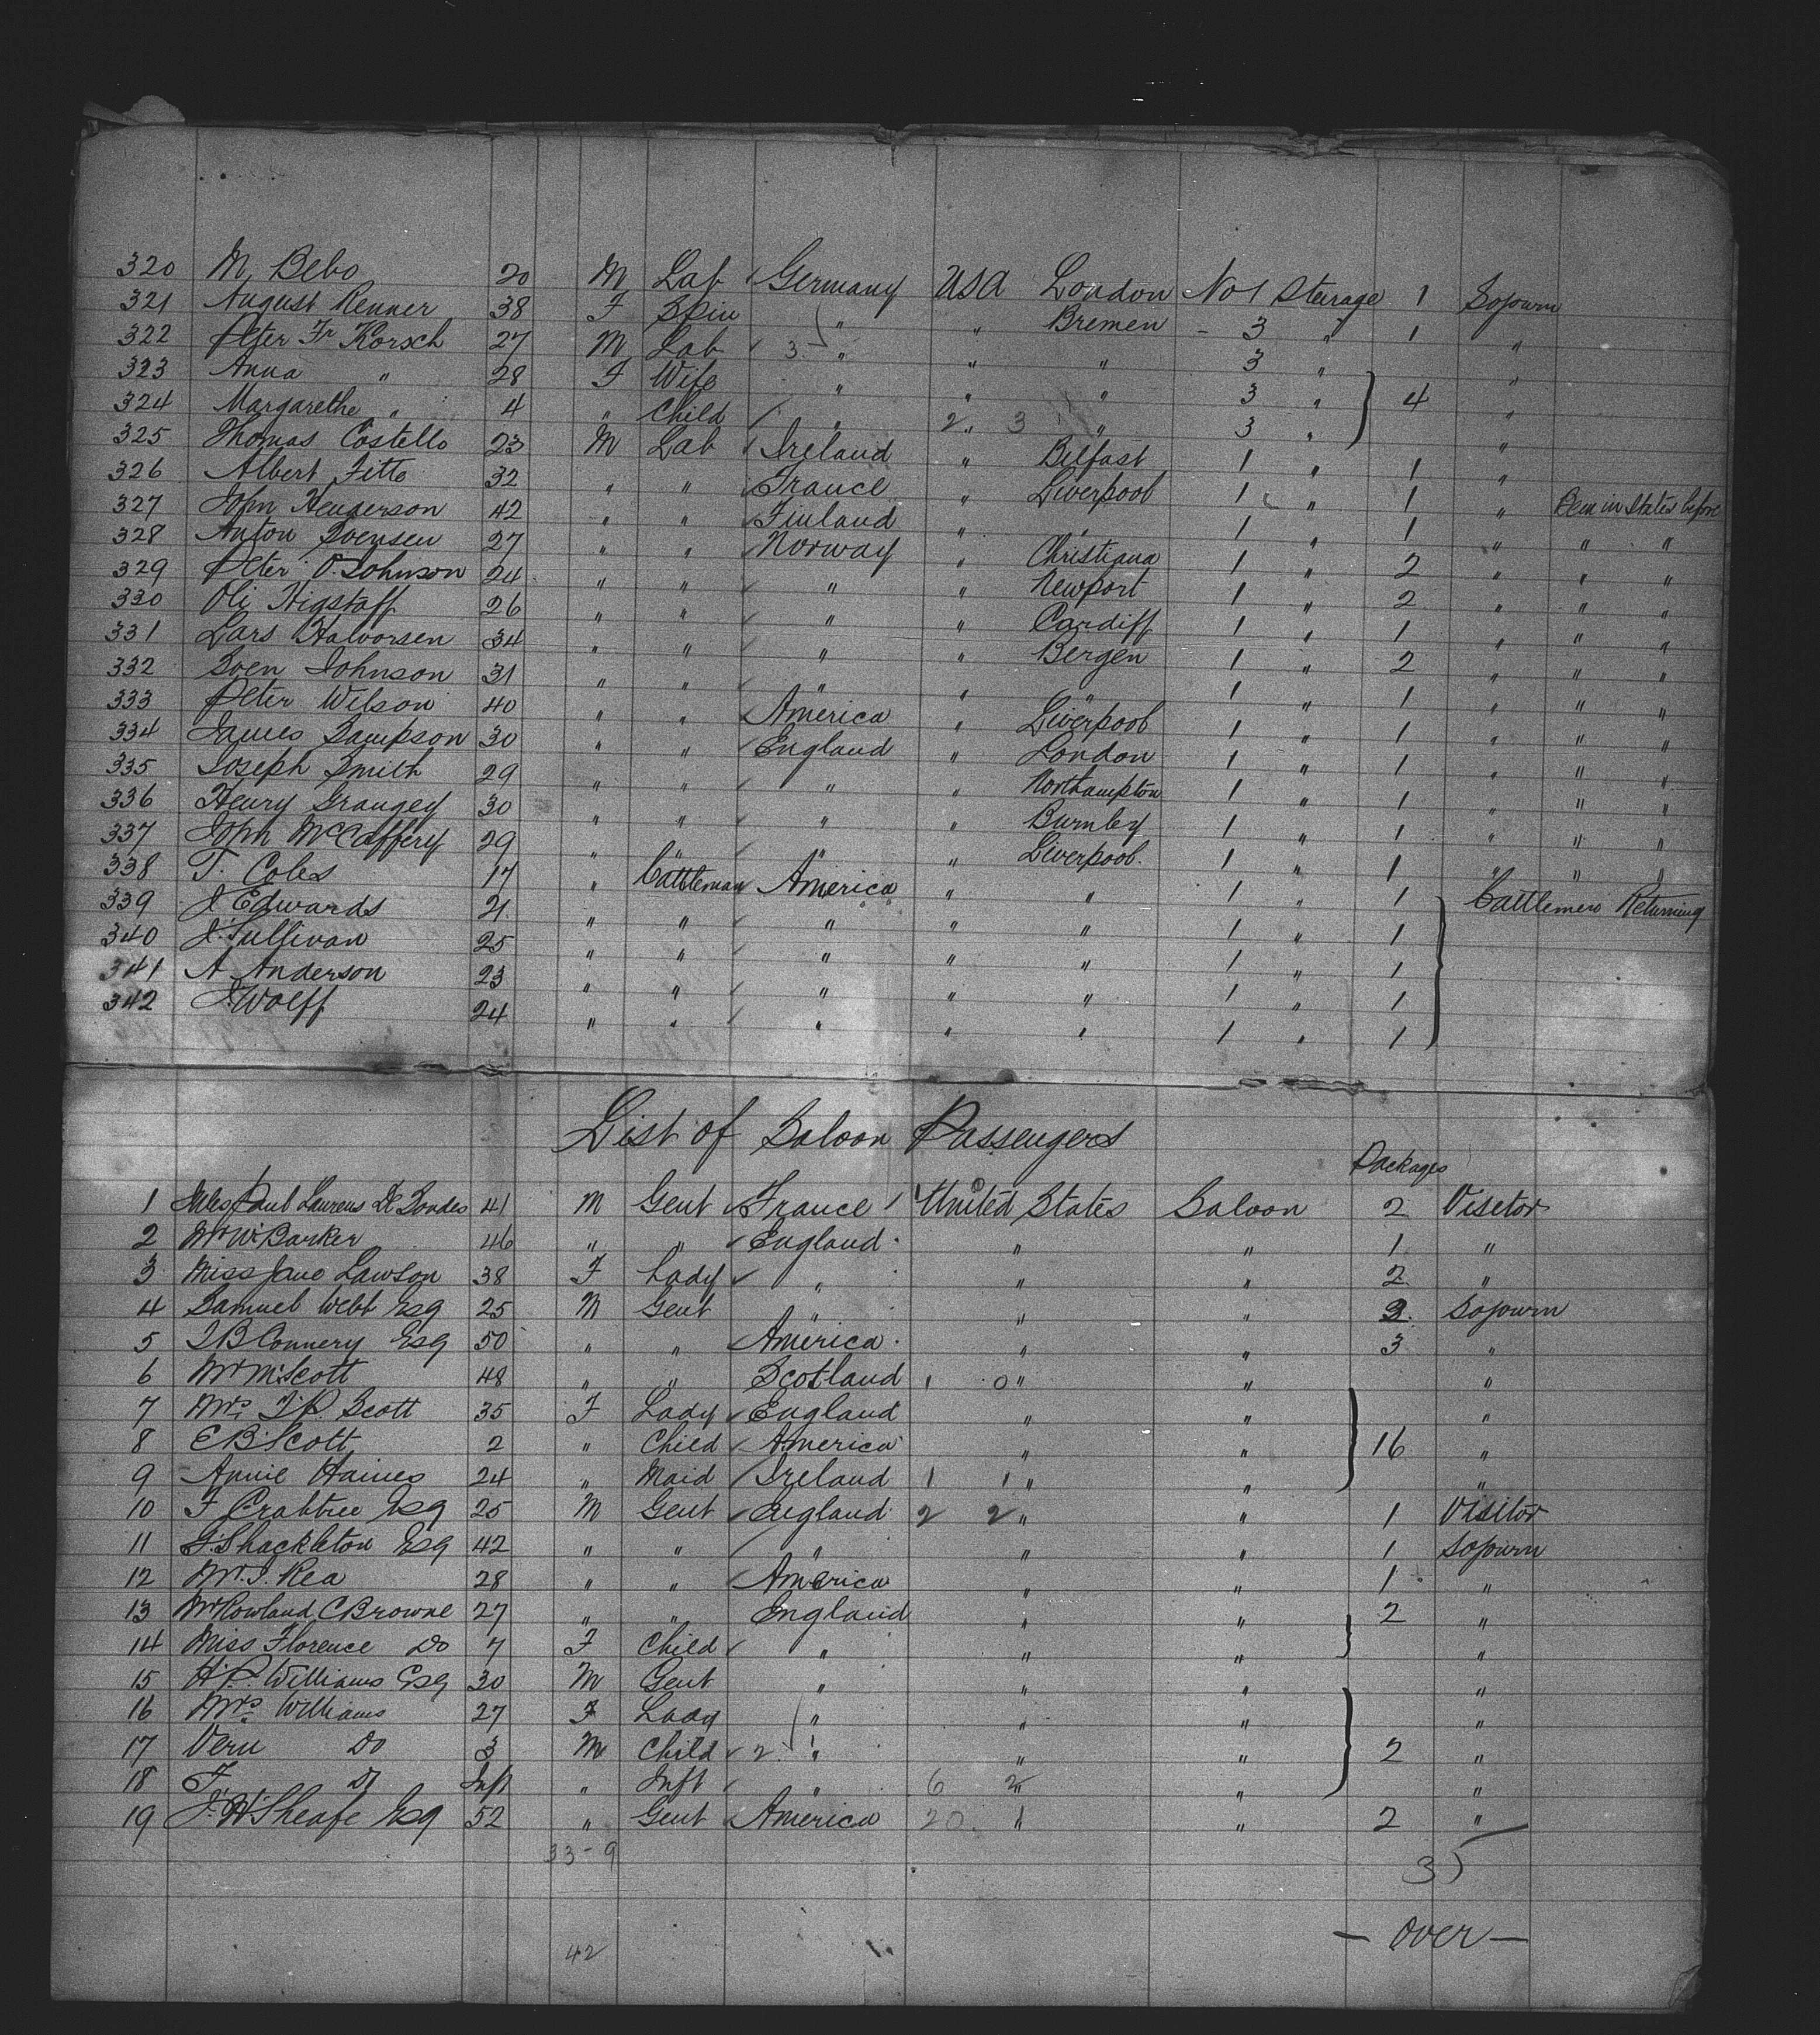 320 M. Bebo 20 M Lab Germany USA London No 1 Steerage 1 Sojourn
321 August Renner 38 F Spin " " Bremen - 3 " 1 "
322 Peter Fr Korsch 27 M Lab 3 " " " 3 " "
323 Anna " 28 F Wife " " " 3 " 4 "
324 Margarethe " 4 " Child " 2 " 3 " 3 " "
325 Thomas Costello 23 M Lab Ireland " Belfast 1 " 1 "
326 Albert 32 " " France " Liverpool 1 " 1 " Been in States before
327 John Henderson 42 " " Finland " " 1 " 1 " " "
328 Anton Svensen 27 " " Norway " Christiana 1 " 2 " " "
329 Peter O. Johnson 24 " " " " Newport 1 " 2 " " "
330 Oli Higstaff 26 " " " " Cardiff 1 " 1 " " "
331 Lars Halvorsen 34 " " " " Bergen 1 " 2 " " "
332 Sven Johnson 31 " " " " " 1 " 1 " " "
333 Peter Wilson 40 " " America " Liverpool 1 " 1 " " "
334 James Sampson 30 " " England " London 1 " 1 " " "
335 Joseph Smith 29 " " " " Northampton 1 " 1 " " "
336 Henry Grangey 30 " " " " Burnley 1 " 1 " " "
337 John McCaffery 29 " " " " Liverpool. 1 " 1 " " "
338 T. Coles 17 " Cattleman America " " 1 " 1 Cattlemen Returning
339 J Edwards 21 " " " " " 1 " 1
340 J. Sullivan 25 " " " " " 1 " 1
341 A Anderson 23 " " " " " 1 " 1
342 J. Wolff 24 " " " " " 1 " 1
List of Saloon Passengers
Packages
1 Jules Paul Laurens De 41 M Gent France United States Saloon 2 Visetor
2 Mr W. Barker 46 " " England " " 1 "
3 Miss Jane Lawson 38 F Lady " " " 2 "
4 Samuel Webb Esq 25 M Gent " " " 3 Sojourn
5 T B Connery Esq 50 " " America " " 3 "
6 Mr M. Scott 48 " " Scotland 1 0 " " "
7 Mrs. T. P. Scott 35 F Lady England " " "
8 E B Scott 2 " Child America " " 16 "
9 Annie Haines 24 " Maid Ireland 1 1 " " "
10 F Crabtree Esq 25 M Gent England 2 2 " " 1 Visitor
11 G. Shackleton Esq 42 " " " " " 1 Sojourn
12 Mr. J. Rea 28 " " America " " 1 "
13 Mr Rowland C Browne 27 " " England " " 2 "
14 Miss Florence Do 7 F Child " " " "
15 H. P. Williams Esq 30 M Gent " " " "
16 Mrs. Williams 27 F Lady " " " "
17 Vern Do 3 M Child 2 " " " 2 "
18 F. Do Inft " Inft " 6 2 " " "
19 J. H Sheafe Esq 52 " Gent America 20 " " 2 "
33-9
35
- Over -
42